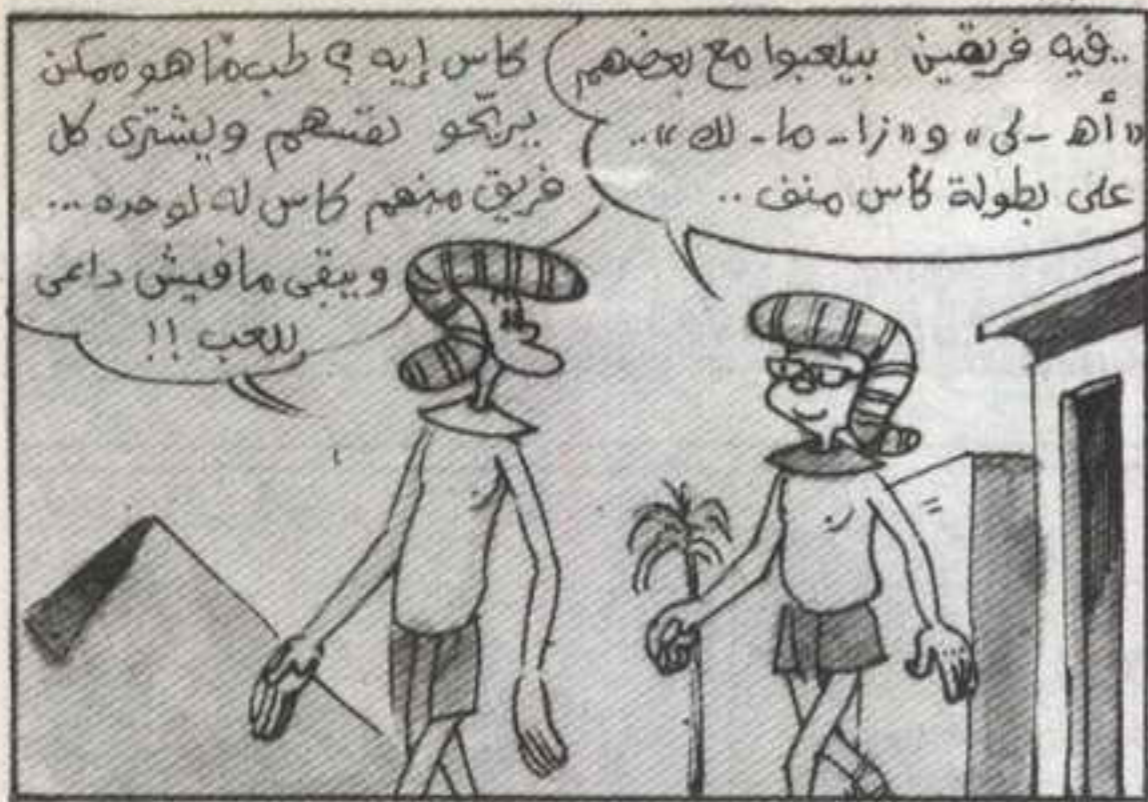 ..فيه فريقين بيلعبوا مع بعضهم
«أهـ - لى» و «زا - ما - لك»..
على بطولة كأس منف..
كاس إيه ؟ طب ما هو ممكن
يريّحو نفسهم ويشترى كل
فريق منهم كاس له لوحده...
ويبقى مافيش داعى
للعب !!